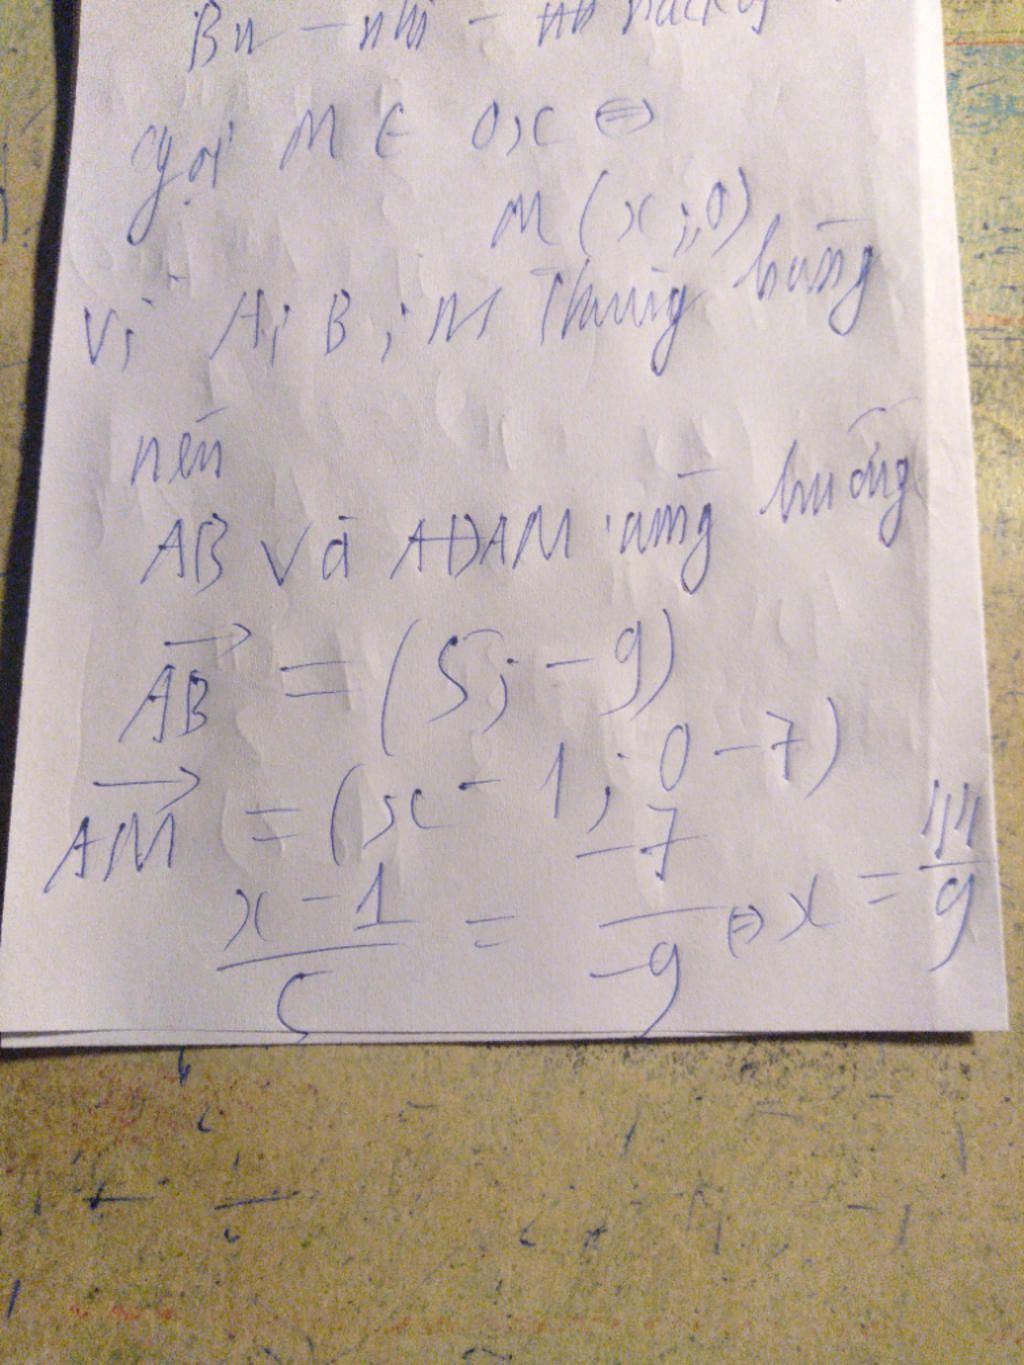 Bu - nhi -
Gọi M ∈ 0x ⇔
M (x ; 0)
Vì A; B; M Thẳng hàng
nên
AB và AM cùng hướng
AB = (5; -9)
AM = (x - 1; 0 - 7)
x - 1 / 5 = -7 / -9 ⇔ x = 44 / 9